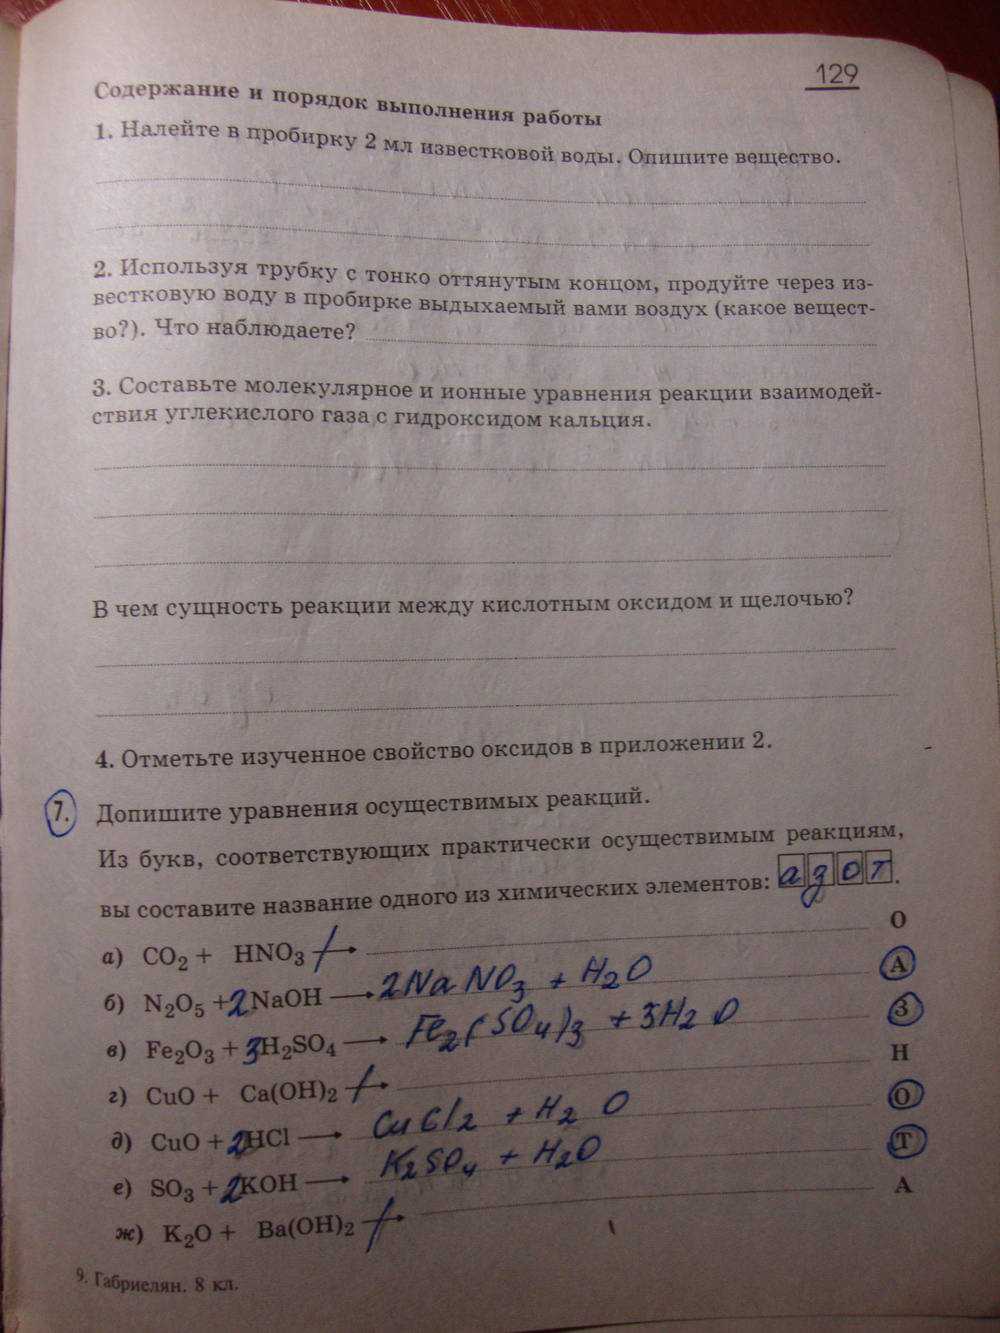 129
Содержание и порядок выполнения работы
1. Налейте в пробирку 2 мл известковой воды. Опишите вещество.
2. Используя трубку с тонко оттянутым концом, продуйте через из-
вестковую воду в пробирке выдыхаемый вами воздух (какое вещест-
во?). Что наблюдаете?
3. Составьте молекулярное и ионные уравнения реакции взаимодей-
ствия углекислого газа с гидроксидом кальция.
В чем сущность реакции между кислотным оксидом и щелочью?
4. Отметьте изученное свойство оксидов в приложении 2.
7. Допишите уравнения осуществимых реакций.
Из букв, соответствующих практически осуществимым реакциям,
вы составите название одного из химических элементов: а з о т .
а) CO₂ + HNO₃ ↛ О
б) N₂O₅ + 2NaOH → 2NaNO₃ + H₂O А
в) Fe₂O₃ + 3H₂SO₄ → Fe₂(SO₄)₃ + 3H₂O З
г) CuO + Ca(OH)₂ ↛ Н
д) CuO + 2HCl → CuCl₂ + H₂O О
е) SO₃ + 2KOH → K₂SO₄ + H₂O Т
ж) K₂O + Ba(OH)₂ ↛ А
9. Габриелян. 8 кл.